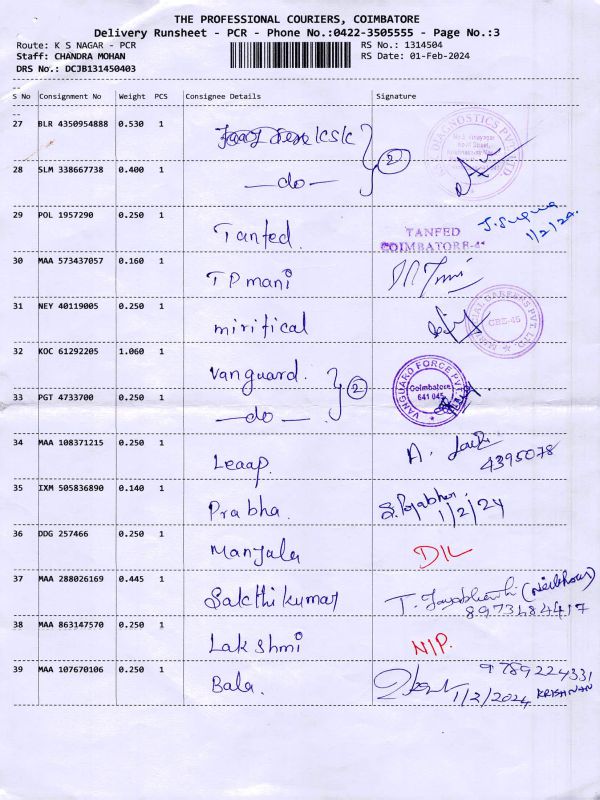 THE PROFESSIONAL COURIERS, COIMBATORE
Delivery Runsheet - PCR - Phone No.:0422-3505555 - Page No.:3
Route: K S NAGAR - PCR RS No.: 1314504
Staff: CHANDRA MOHAN RS Date: 01-Feb-2024
DRS No.: DCJB131450403
S No Consignment No Weight PCS Consignee Details Signature
27 BLR 4350954888 0.530 1 KSK
2
28 SLM 338667738 0.400 1 —do—
29 POL 1957290 0.250 1 Tanfed. TANFED COIMBATORE-4 1/2/24.
30 MAA 573437057 0.160 1 T P mani
31 NEY 40119005 0.250 1 mirifical CBE-45
32 KOC 61292205 1.060 1 Vanguard. VANGUARD FORCE PVT LTD Coimbatore 641 045
2
33 PGT 4733700 0.250 1 —do—
34 MAA 108371215 0.250 1 Leaap. 4395078
35 IXM 505836890 0.140 1 Prabha. 1/2/24
36 DDG 257466 0.250 1 Manjula D/L
37 MAA 288026169 0.445 1 Sakthikumar 8973484417
38 MAA 863147570 0.250 1 Lakshmi N/P.
39 MAA 107670106 0.250 1 Bala. 9789224331
1/2/2024 KRISHNAN